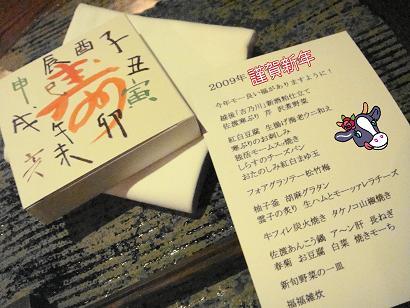 子
丑
寅
卯
辰
巳
午
未
申
酉
戌
亥
寿
2009年 謹賀新年
今年モー良い福がありますように！
越後「吉乃川」新酒粕仕立て
佐渡寒ぶり 芹 沢煮野菜
紅白豆腐 生揚げ海老ウニ和え
寒ぶりのお刺しみ
独活モームス焼き
しらすのチーズパン
おたのしみ紅白まゆ玉
フォアグランソテー松竹梅
柚子釜 胡麻グラタン
雲子の炙り 生ハムとモーツァレラチーズ
牛フィレ炭火焼き タケノコ山椒焼き
佐渡あんこう鍋 ア～ン肝 長ねぎ
春菊 お豆腐 白菜 焼きモーち
新旬野菜の一皿
福福雑炊